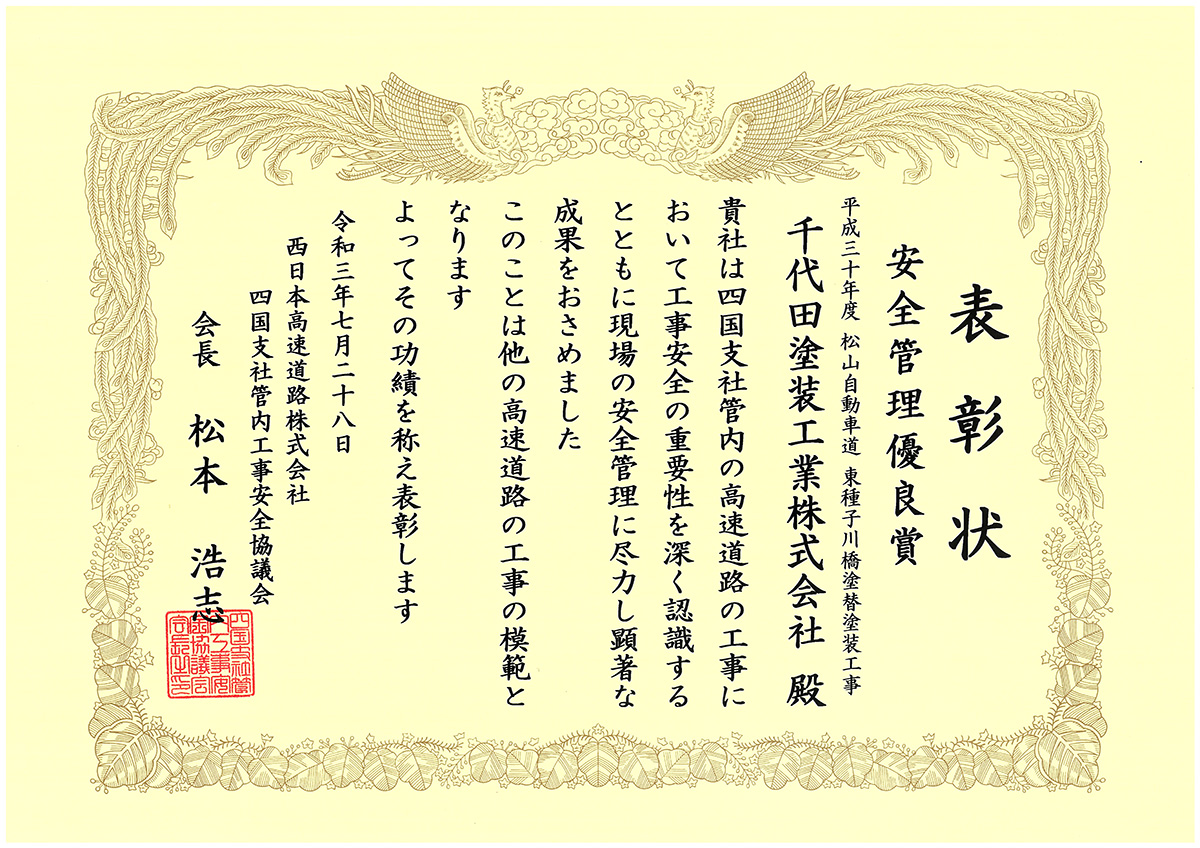 表彰状
安全管理優良賞
平成三十年度 松山自動車道 東種子川橋塗替塗装工事
千代田塗装工業株式会社 殿
貴社は四国支社管内の高速道路の工事に
おいて工事安全の重要性を深く認識する
とともに現場の安全管理に尽力し顕著な
成果をおさめました
このことは他の高速道路の工事の模範と
なります
よってその功績を称え表彰します
令和三年七月二十八日
西日本高速道路株式会社
四国支社管内工事安全協議会
会長 松本 浩志
四国支社管
内工事安
全協議会
会長之印